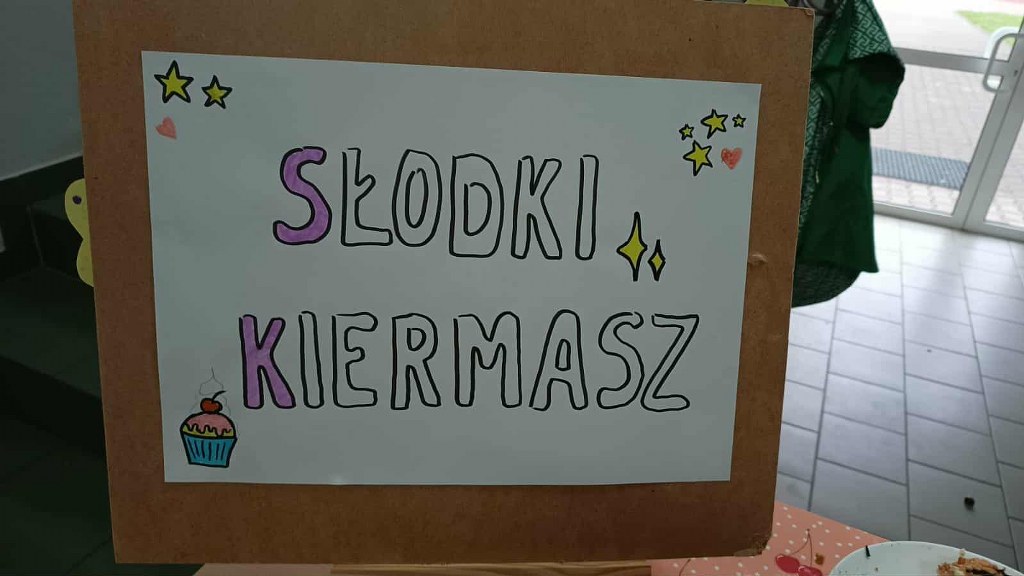 SŁODKI
KIERMASZ